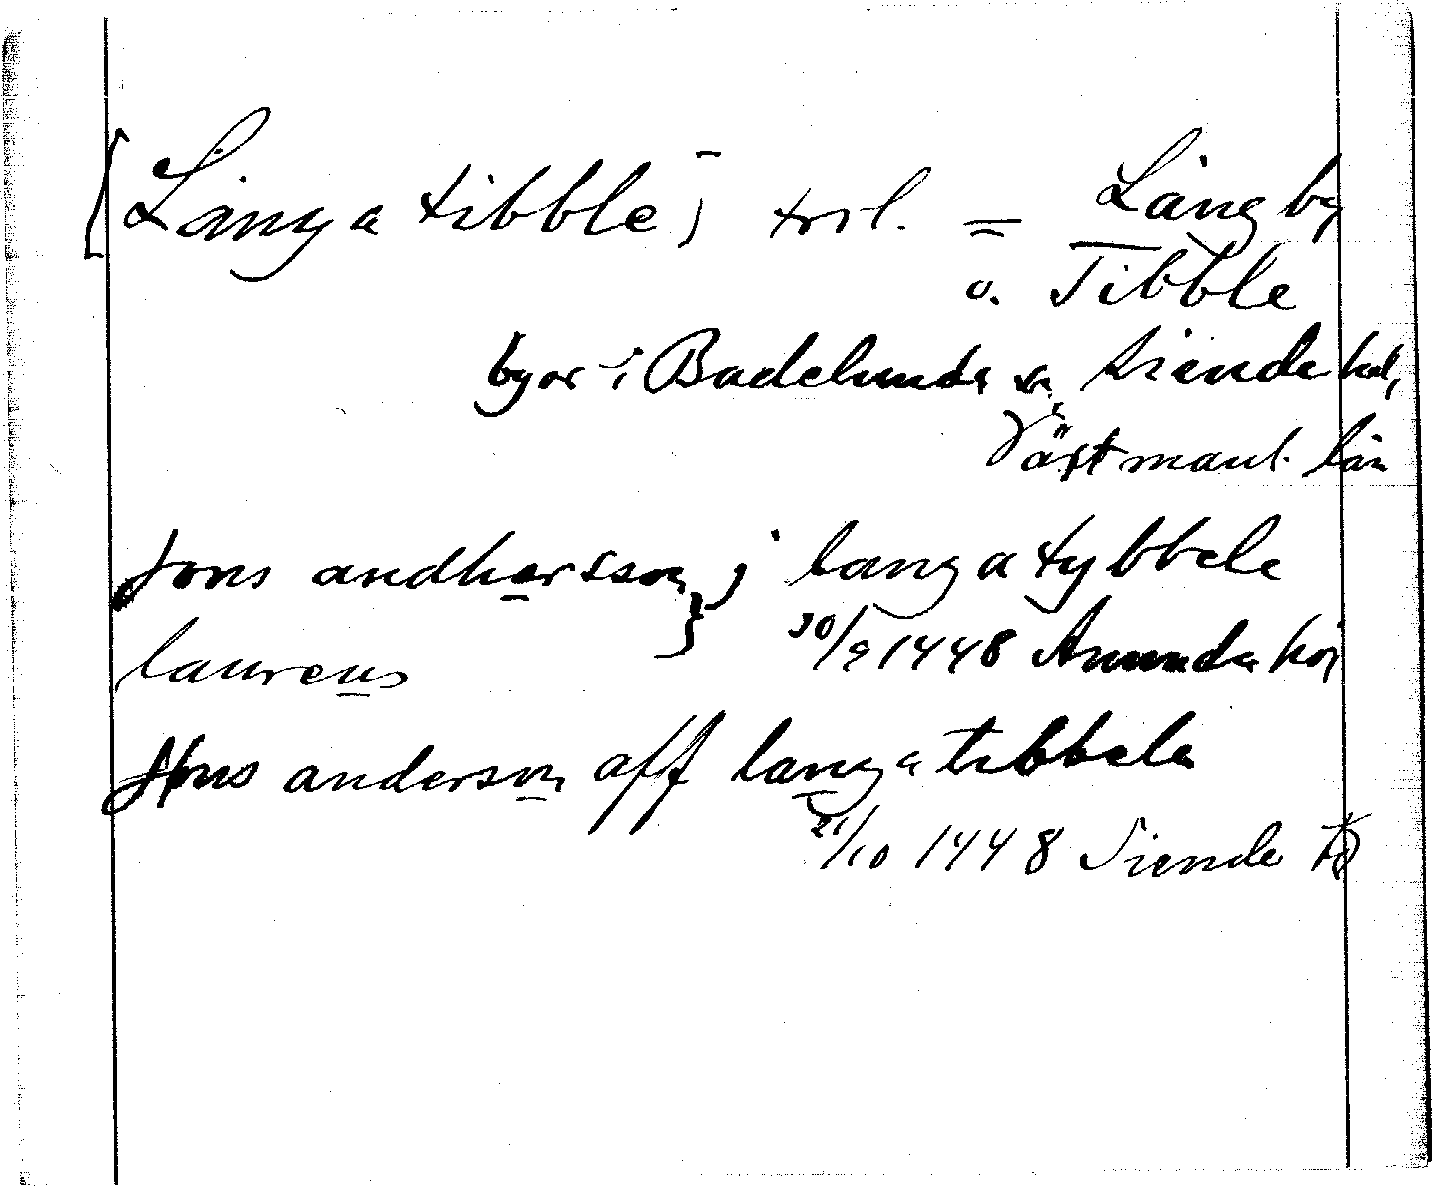 [Långa tibble] trol. = Långby
o. Tibble
byar i Badelunda sn, Siende hd,
Västmanl. län
Jons andhersson } j langa tybbele
laurens
30/9 1448 Anundahög
Jöns anderson aff langa tibbela
21/10 1448 Siende